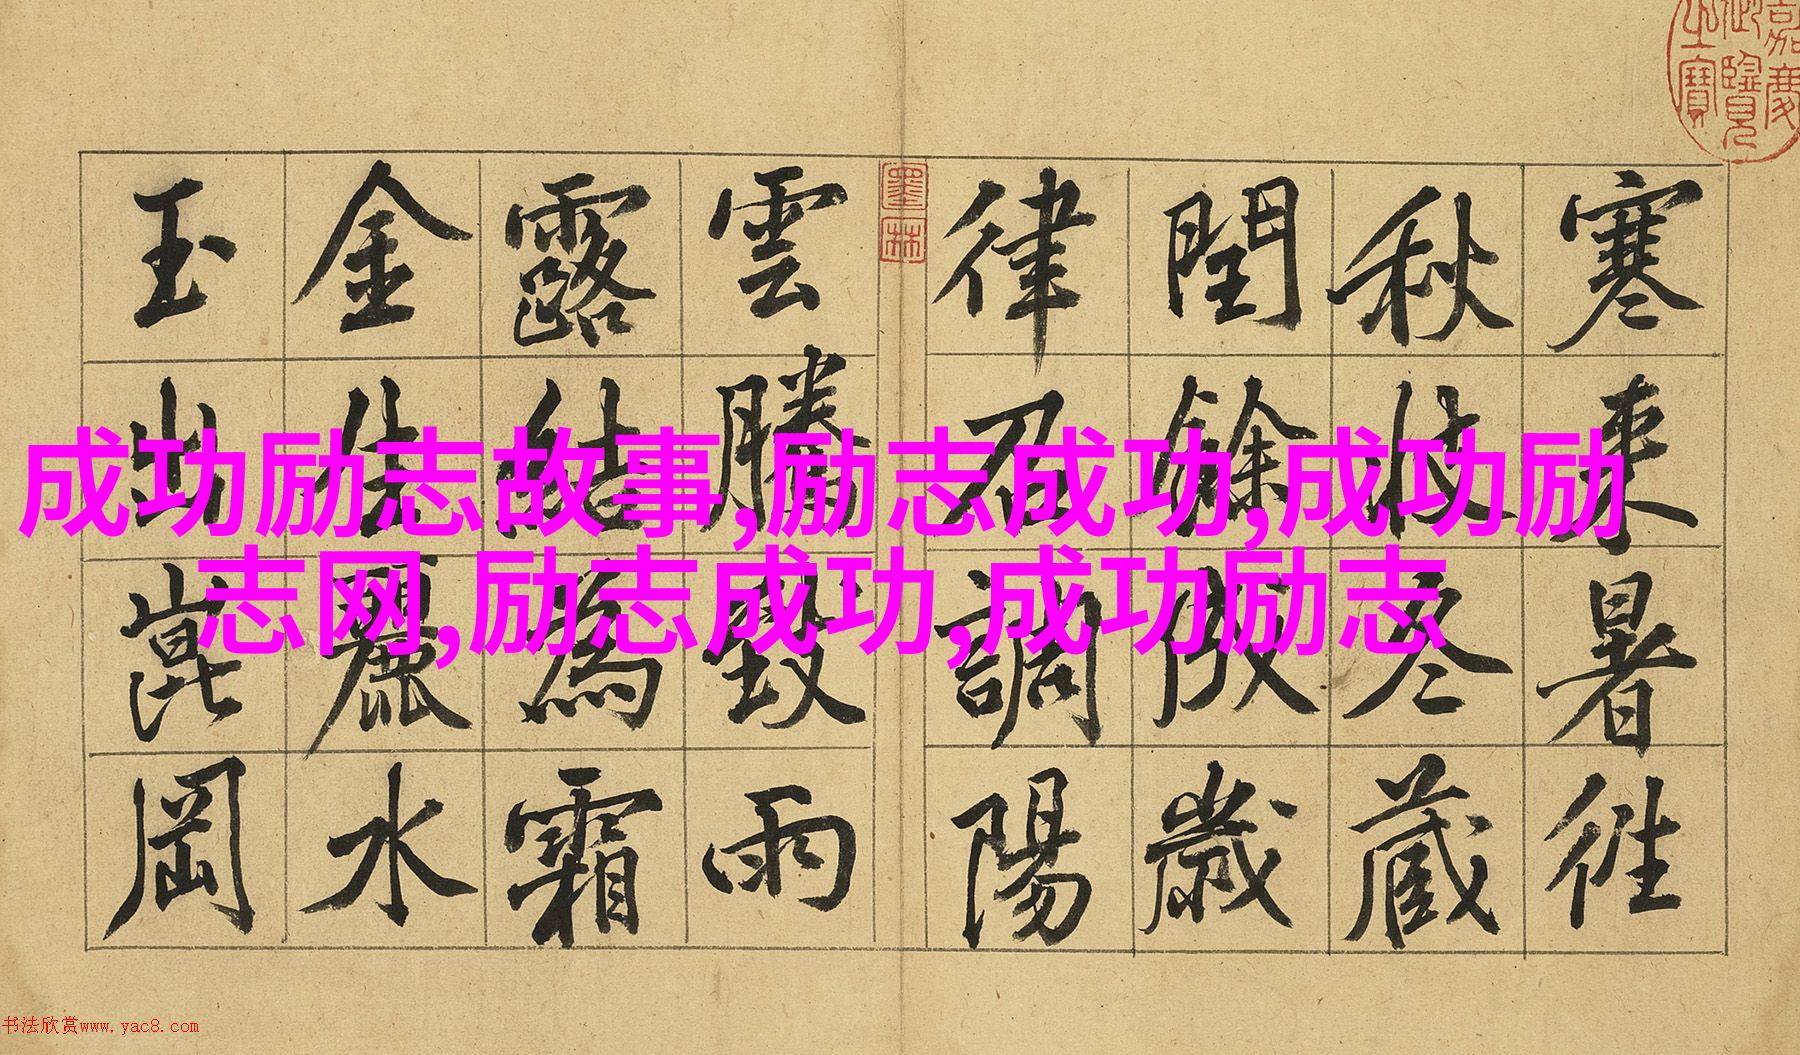 嘉慶
御覽
之寶
寒来暑徃
秋收冬藏
閏餘成歲
律召調陽
墨林
雲騰致雨
露結為霜
金生麗水
玉出崑岡
成功励志故事,励志成功,成功励
志网,励志成功,成功励志
书法欣赏www.yac8.com